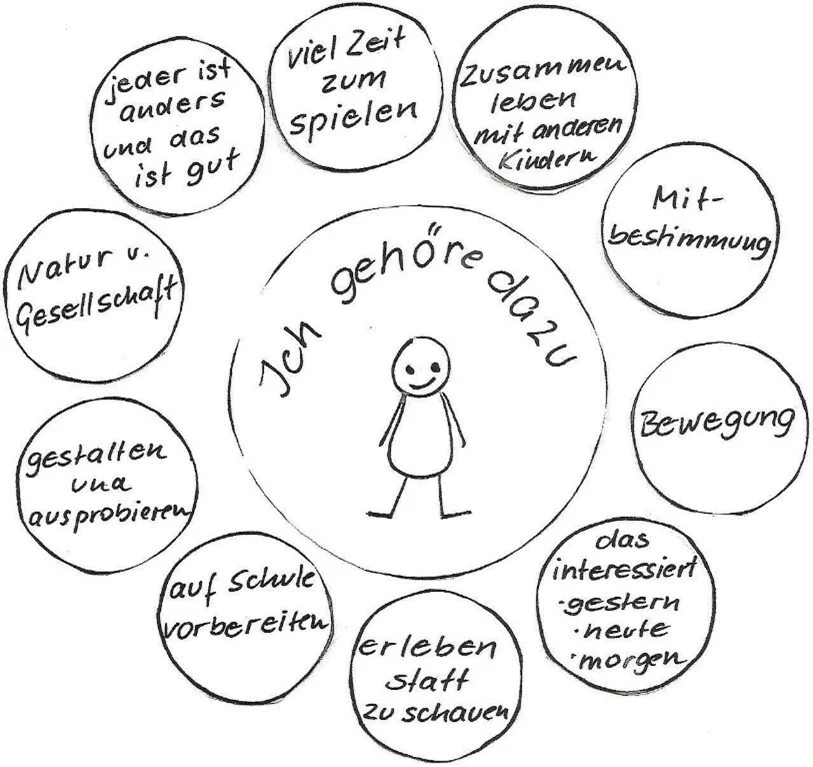 jeder ist
anders
und das
ist gut
viel Zeit
zum
spielen
Zusammen
leben
mit anderen
Kindern
Mit-
bestimmung
Natur u.
Gesellschaft
Ich gehöre dazu
Bewegung
gestalten
und
ausprobieren
das
interessiert
·gestern
·heute
·morgen
auf Schule
vorbereiten
erleben
statt
zu schauen